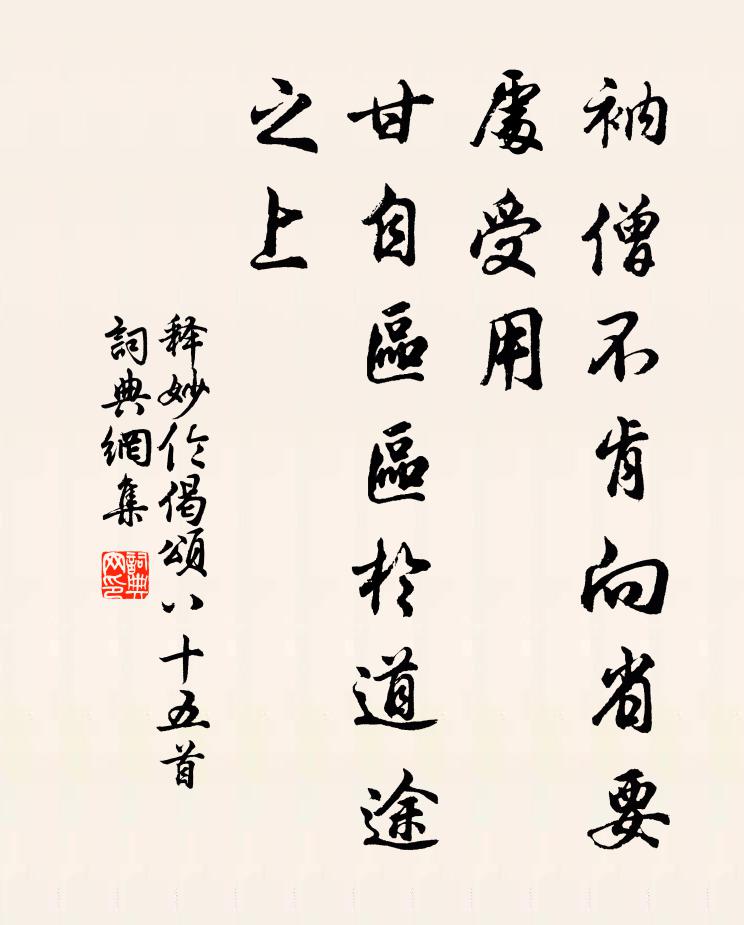 衲僧不肯向省要
處受用
甘自區區於道途
之上
释妙伦偈頌八十五首
詞典網集
詞典
网印